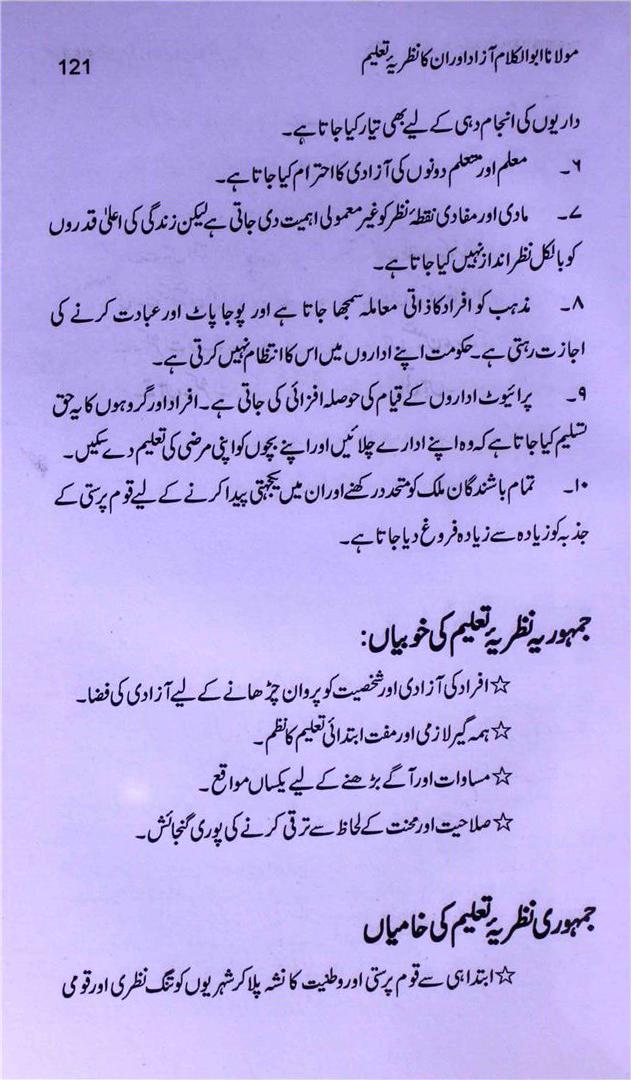 مولانا ابوالکلام آزاد اور ان کا نظریۂ تعلیم
121
داریوں کی انجام دہی کے لیے بھی تیار کیا جاتا ہے۔
۶۔ معلم اور متعلم دونوں کی آزادی کا احترام کیا جاتا ہے۔
۷۔ مادی اور مفادی نقطۂ نظر کو غیر معمولی اہمیت دی جاتی ہے لیکن زندگی کی اعلیٰ قدروں
کو بالکل نظر انداز نہیں کیا جاتا ہے۔
۸۔ مذہب کو افراد کا ذاتی معاملہ سمجھا جاتا ہے اور پوجا پاٹ اور عبادت کرنے کی
اجازت رہتی ہے۔ حکومت اپنے اداروں میں اس کا انتظام نہیں کرتی ہے۔
۹۔ پرائیوٹ اداروں کے قیام کی حوصلہ افزائی کی جاتی ہے۔ افراد اور گروہوں کا یہ حق
تسلیم کیا جاتا ہے کہ وہ اپنے ادارے چلائیں اور اپنے بچوں کو اپنی مرضی کی تعلیم دے سکیں۔
۱۰۔ تمام باشندگان ملک کو متحد رکھنے اور ان میں یکجہتی پیدا کرنے کے لیے قوم پرستی کے
جذبہ کو زیادہ سے زیادہ فروغ دیا جاتا ہے۔
جمہوریہ نظریۂ تعلیم کی خوبیاں:
☆ افراد کی آزادی اور شخصیت کو پروان چڑھانے کے لیے آزادی کی فضا۔
☆ ہمہ گیر لازمی اور مفت ابتدائی تعلیم کا نظم۔
☆ مساوات اور آگے بڑھنے کے لیے یکساں مواقع۔
☆ صلاحیت اور محنت کے لحاظ سے ترقی کرنے کی پوری گنجائش۔
جمہوری نظریۂ تعلیم کی خامیاں
☆ ابتدا ہی سے قوم پرستی اور وطنیت کا نشہ پلا کر شہریوں کو تنگ نظری اور قومی